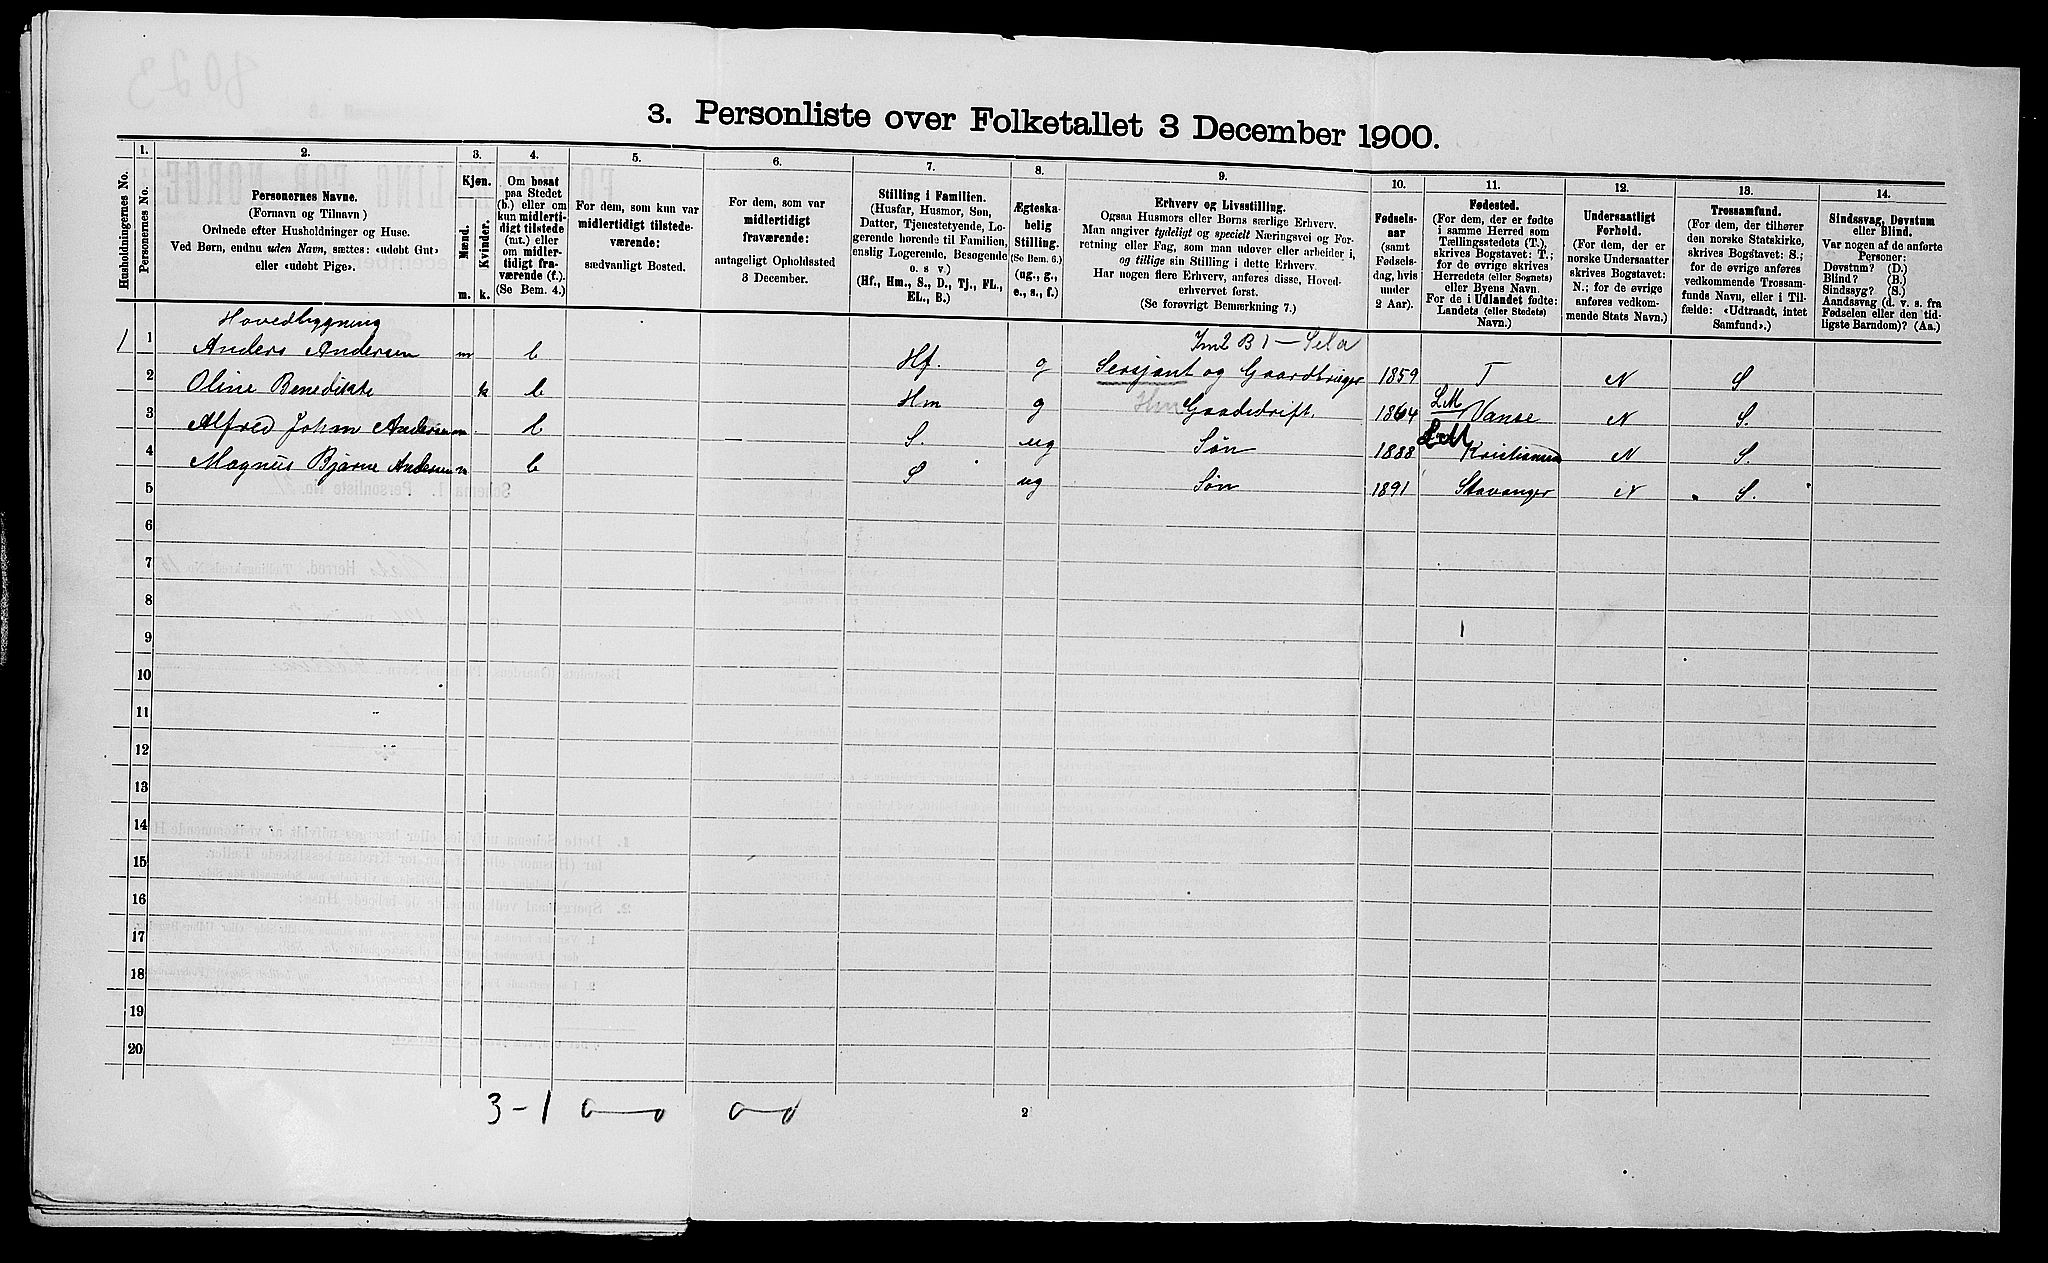 3. Personliste over Folketallet 3 December 1900.
Husholdningernes No.
1.
Personernes No.
2.
Personernes Navne.
(Fornavn og Tilnavn)
Ordnede efter Husholdninger og Huse.
Ved Børn, endnu uden Navn, sættes: «udøbt Gut»
eller «udøbt Pige».
3.
Kjøn.
Mænd.
m.
Kvinder.
k.
4.
Om bosat
paa Stedet
(b.) eller om
kun midlerti-
digt tilstede
(mt.) eller
om midler-
tidigt fra-
værende (f.).
(Se Bem. 4.)
5.
For dem, som kun var
midlertidigt tilstede-
værende:
sædvanligt Bosted.
6.
For dem, som var
midlertidigt
fraværende:
antageligt Opholdssted
3 December.
7.
Stilling i Familien.
(Husfar, Husmor, Søn,
Datter, Tjenestetyende, Lo-
gerende hørende til Familien,
enslig Logerende, Besøgende
o. s v.)
(Hf., Hm., S., D., Tj., FL.,
EL., B.)
8.
Ægteska-
belig
Stilling.
(Se Bem. 6.)
(ug., g.,
e., s., f.)
9.
Erhverv og Livsstilling.
Ogsaa Husmors eller Børns særlige Erhverv.
Man angiver tydeligt og specielt Næringsvei og For-
retning eller Fag, som man udøver eller arbeider i,
og tillige sin Stilling i dette Erhverv.
Har nogen flere Erhverv, anføres disse, Hoved-
erhvervet først.
(Se forøvrigt Bemærkning 7.)
10.
Fødsels-
aar
(samt
Fødsels-
dag, hvis
under
2 Aar).
11.
Fødested.
(For dem, der er fødte
i samme Herred som
Tællingsstedets (T.),
skrives Bogstavet: T.;
for de øvrige skrives
Herredets (eller Sognets)
eller Byens Navn.
For de i Udlandet fødte:
Landets (eller Stedets)
Navn.)
12.
Undersaatligt
Forhold.
(For dem, der er
norske Undersaatter
skrives Bogstavet:
N.; for de øvrige
anføres vedkom-
mende Stats Navn.)
13.
Trossamfund.
(For dem, der tilhører
den norske Statskirke,
skrives Bogstavet: S.;
for de øvrige anføres
vedkommende Trossam-
funds Navn, eller i Til-
fælde: «Udtraadt, intet
Samfund».)
14.
Sindssvag, Døvstum
eller Blind.
Var nogen af de anførte
Personer:
Døvstum? (D.)
Blind? (B.)
Sindssyg? (S.)
Aandssvag (d. v. s. fra
Fødselen eller den tid-
ligste Barndom)? (Aa.)
Hovedbygning
Im2 B1 – Sela
1 1 Anders Andersen m b Hf. g Sersjant og Gaardbruger 1859 T N S
2 Oline Benedikte k b Hm g Hm Gaadsdrift. 1864 L.M Vanse N S.
3 Alfred Johm Andersen m b S. ug Søn 1888 L.M Kristianssa N S.
4 Magnus Bjarne Andersen m b S ug Søn 1891 Stavanger N S.
5
6
7
8
9
10
11
12
13
14
15
16
17
18
19
20
3 – 1 0 – 0 0 – 0
2